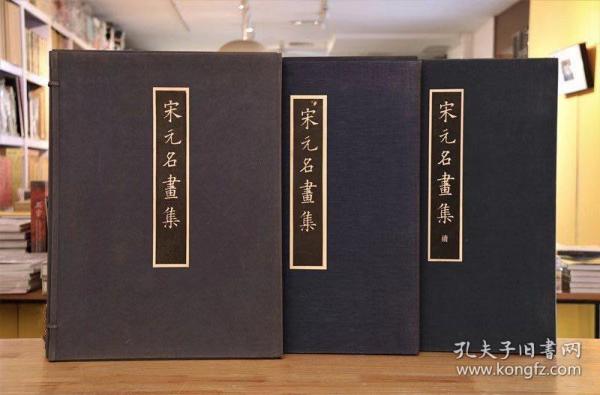 宋元名畫集
宋元名畫集
宋元名畫集
續
孔夫子旧書网
www.kongfz.com